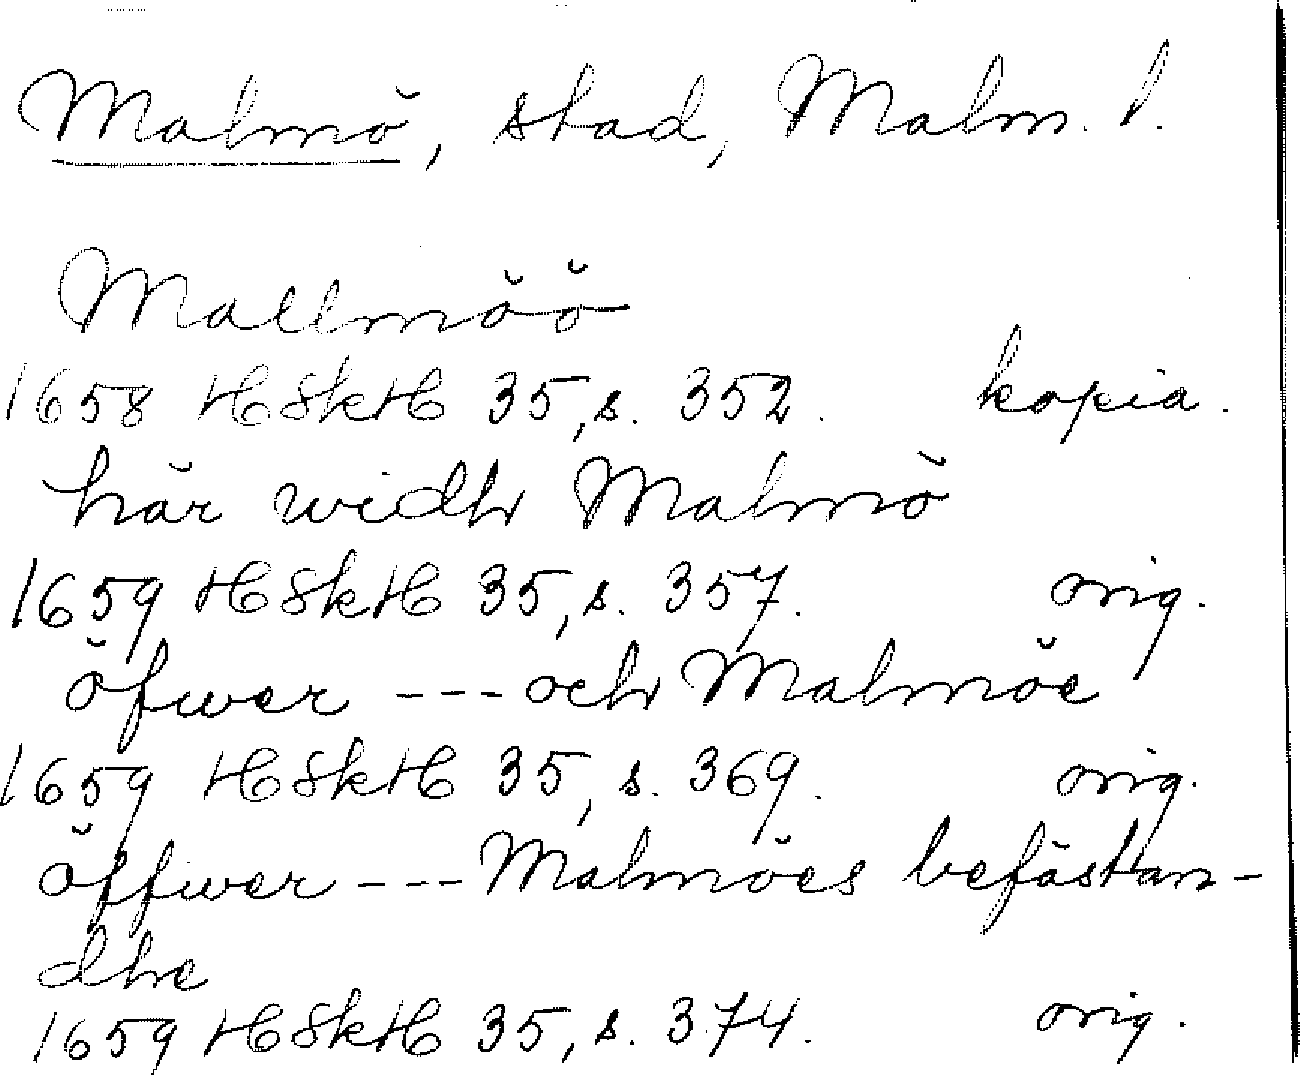 Malmö, stad, Malm. l.
Mallmöö
1658 HSkH 35, s. 352. kopia.
här widh Malmö
1659 HSkH 35, s. 357. orig.
öfwer --- och Malmöe
1659 HSkH 35, s. 369. orig.
öffwer --- Malmöes befästan-
dhe
1659 HSkH 35, s. 374. orig.